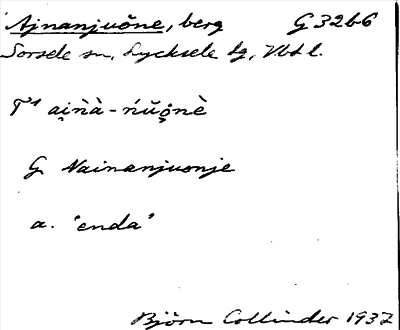 Ajnanjuõne, berg G 32b6
Sorsele sn, Lycksele lg, Vbtl.
T¹ ai̯ǹà-ńŭo̊nè
G Nainanjuonje
a. "enda"
Björn Collinder 1937